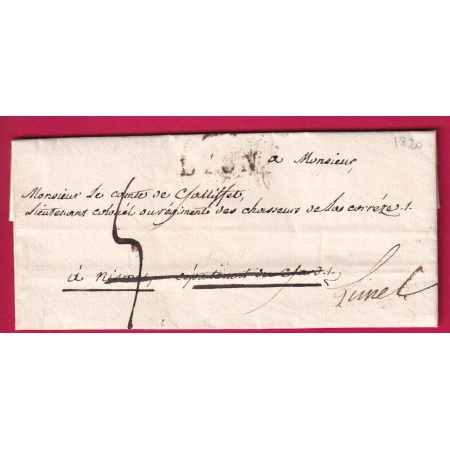 1820
LYON
a Monsieur,
Monsieur Le comte de Galliffet,
Lieutenant colonel du régiments des chasseurs de la corréze.
5
à Nismes, département du Gard.
Lunel